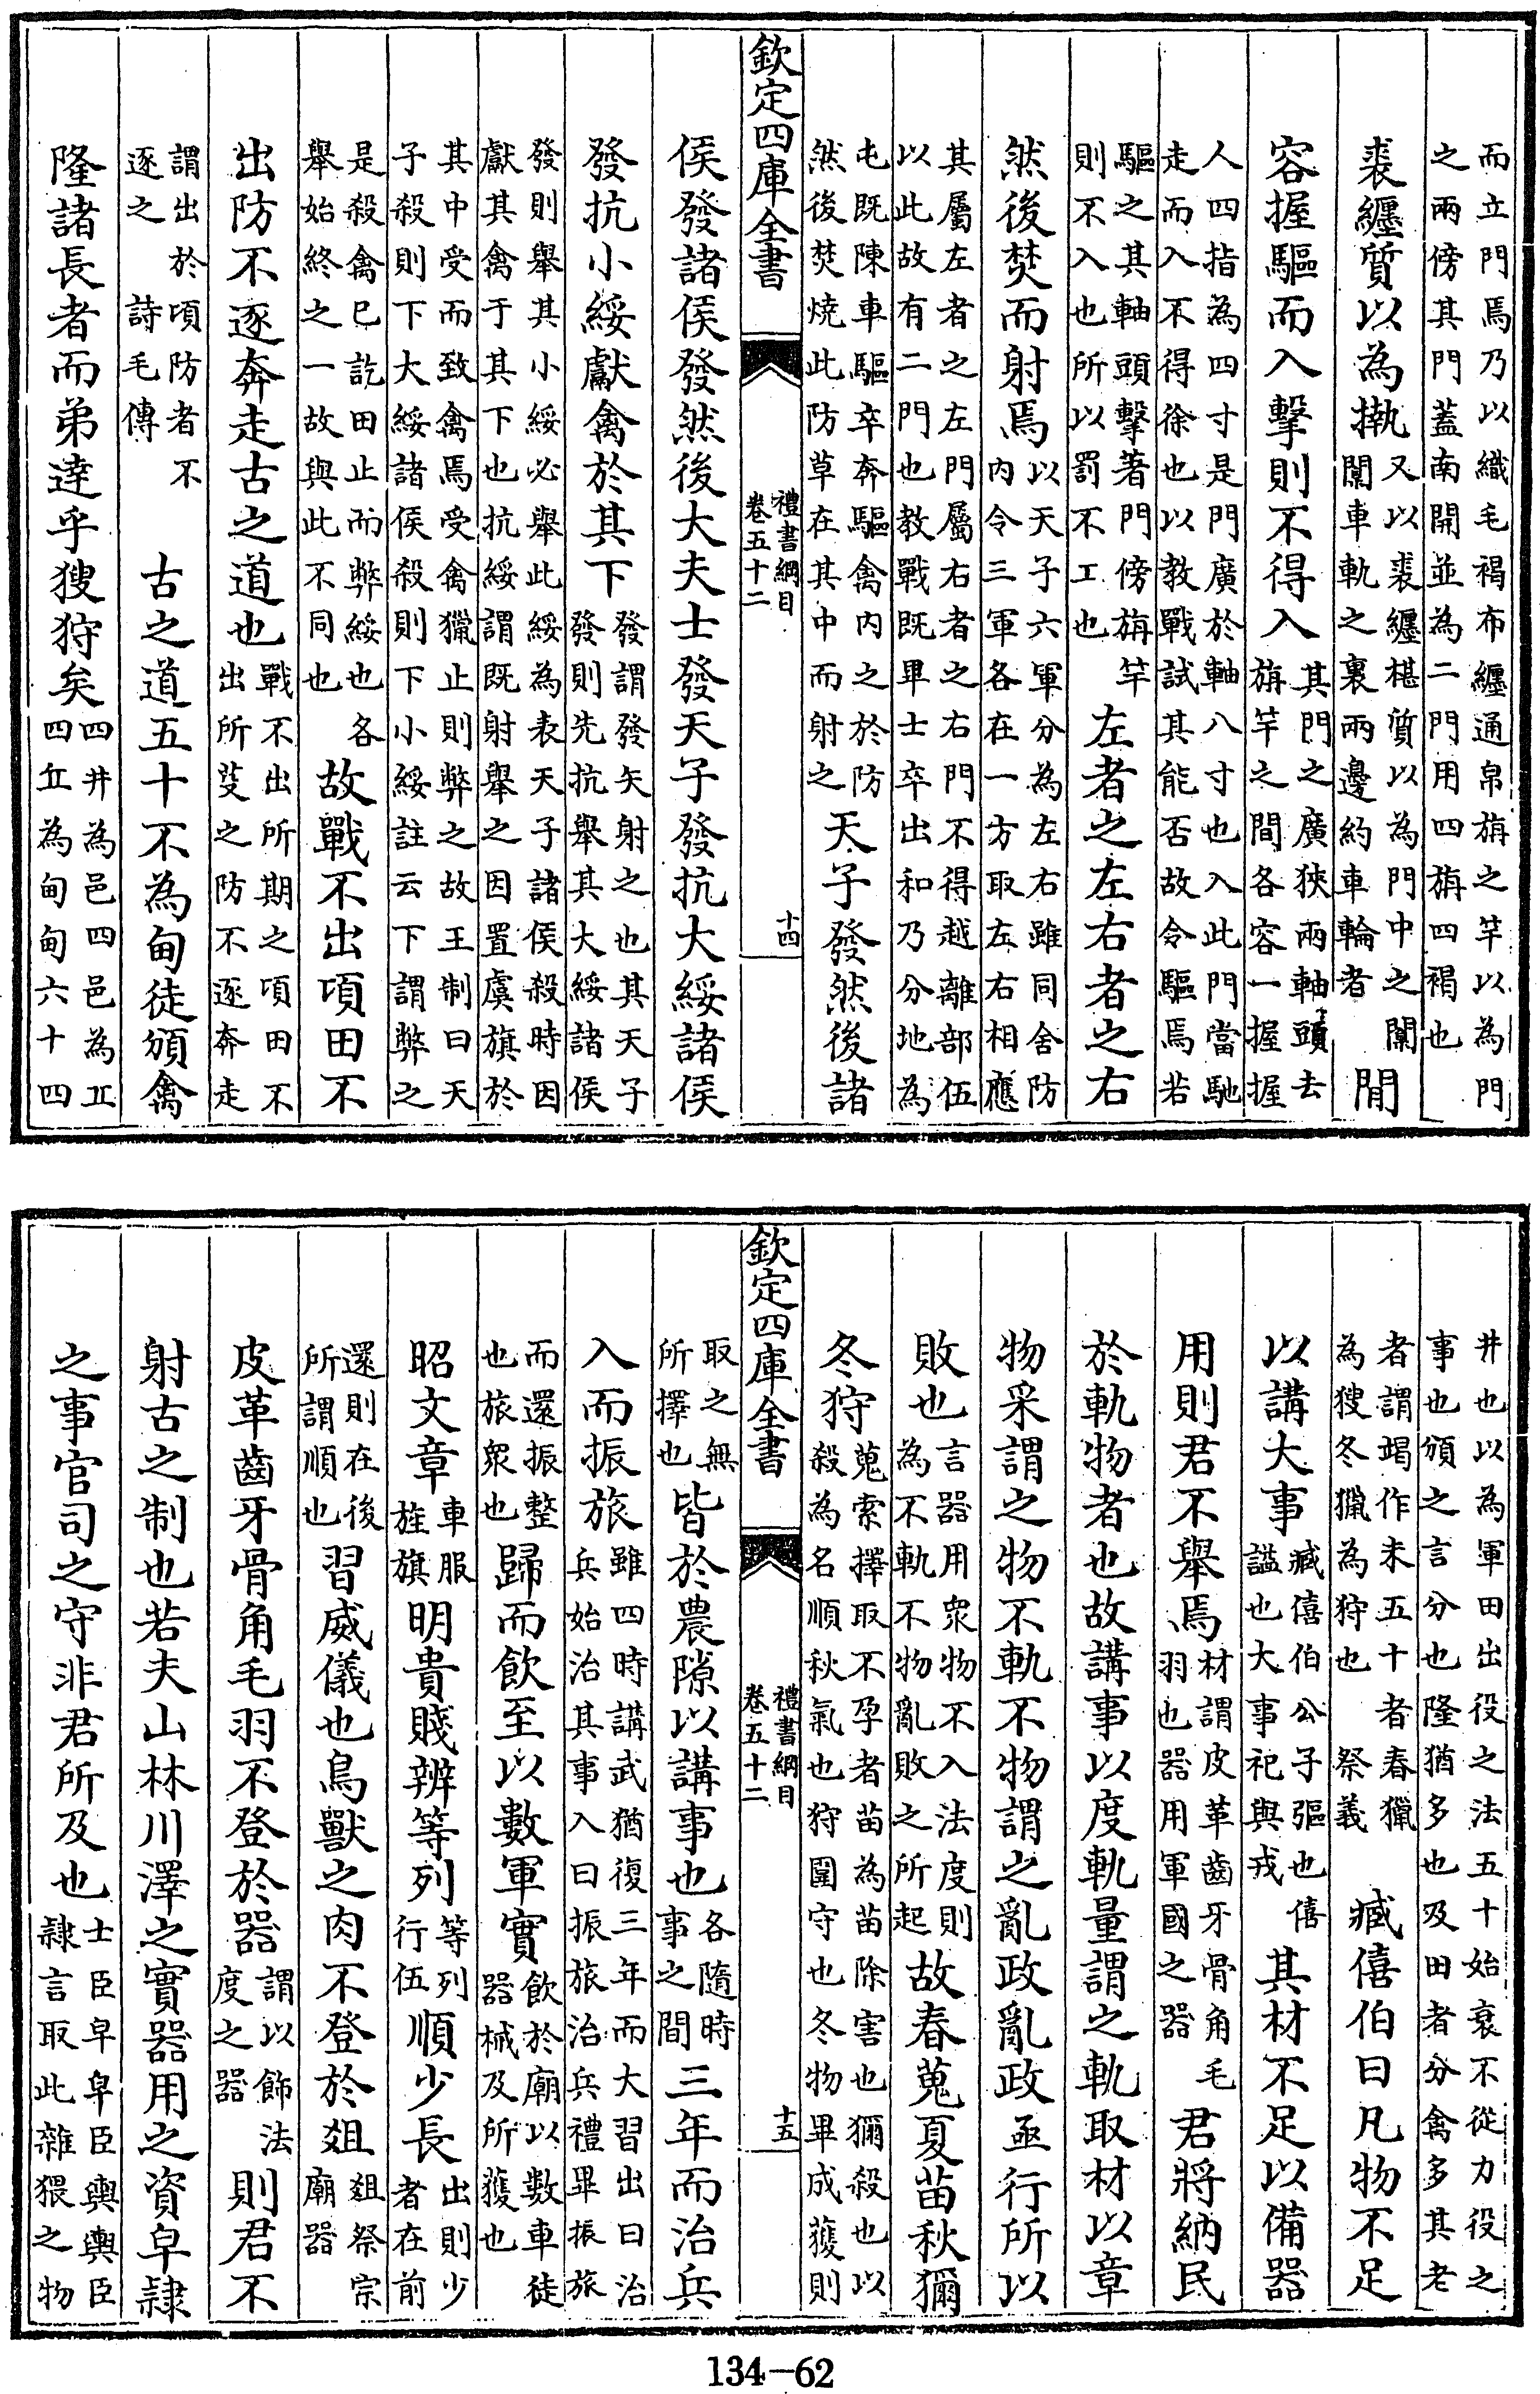 而立門焉乃以織毛褐布纒通帛旃之竿以為門
之兩傍其門蓋南開並為二門用四旃四褐也
裘纒質以為槷
又以裘纒椹質以為門中之闑
闑車軌之裏兩邊約車輪者
閒
容握驅而入擊則不得入
其門之廣狹兩軸頭去
旃竿之間各容一握握
人四指為四寸是門廣於軸八寸也入此門當馳
走而入不得徐也以教戰試其能否故令驅焉若
驅之其軸頭擊著門傍旃竿
則不入也所以罰不工也
左者之左右者之右
然後焚而射焉
以天子六軍分為左右雖同舍防
内令三軍各在一方取左右相應
其屬左者之左門屬右者之右門不得越離部伍
以此故有二門也教戰既畢士卒出和乃分地為
屯既陳車驅卒奔驅禽内之於防
然後焚燒此防草在其中而射之
天子發然後諸
欽定四庫全書
禮書綱目
卷五十二
十四
侯發諸侯發然後大夫士發天子發抗大綏諸侯
發抗小綏獻禽於其下
發謂發矢射之也其天子
發則先抗舉其大綏諸侯
發則舉其小綏必舉此綏為表天子諸侯殺時因
獻其禽于其下也抗綏謂既射舉之因置虞旗於
其中受而致禽焉受禽獵止則弊之故王制曰天
子殺則下大綏諸侯殺則下小綏註云下謂弊之
是殺禽已訖田止而弊綏也各
舉始終之一故與此不同也
故戰不出頃田不
出防不逐奔走古之道也
戰不出所期之頃田不
出所芟之防不逐奔走
謂出於頃防者不
逐之 詩毛傳
古之道五十不為甸徒頒禽
隆諸長者而弟逹乎獀狩矣
四井為邑四邑為丘
四丘為甸甸六十四
井也以為軍田出役之法五十始衰不從力役之
事也頒之言分也隆猶多也及田者分禽多其老
者謂竭作未五十者春獵
為獀冬獵為狩也 祭義
臧僖伯曰凡物不足
以講大事
臧僖伯公子彄也僖
諡也大事祀與戎
其材不足以備器
用則君不舉焉
材謂皮革齒牙骨角毛
羽也器用軍國之器
君將納民
於軌物者也故講事以度軌量謂之軌取材以章
物采謂之物不軌不物謂之亂政亂政亟行所以
敗也
言器用衆物不入法度則
為不軌不物亂敗之所起
故春蒐夏苗秋獮
冬狩
蒐索擇取不孕者苗為苗除害也獮殺也以
殺為名順秋氣也狩圍守也冬物畢成獲則
欽定四庫全書
禮書綱目
卷五十二
十五
取之無
所擇也
皆於農隙以講事也
各隨時
事之間
三年而治兵
入而振旅
雖四時講武猶復三年而大習出曰治
兵始治其事入曰振旅治兵禮畢振旅
而還振整
也旅衆也
歸而飲至以數軍實
飲於廟以數車徒
器械及所獲也
昭文章
車服
旌旗
明貴賤辨等列
等列
行伍
順少長
出則少
者在前
還則在後
所謂順也
習威儀也鳥獸之肉不登於俎
俎祭宗
廟器
皮革齒牙骨角毛羽不登於器
謂以飾法
度之器
則君不
射古之制也若夫山林川澤之實器用之資皁隷
之事官司之守非君所及也
士臣皁皁臣輿輿臣
隷言取此雜猥之物
134-62